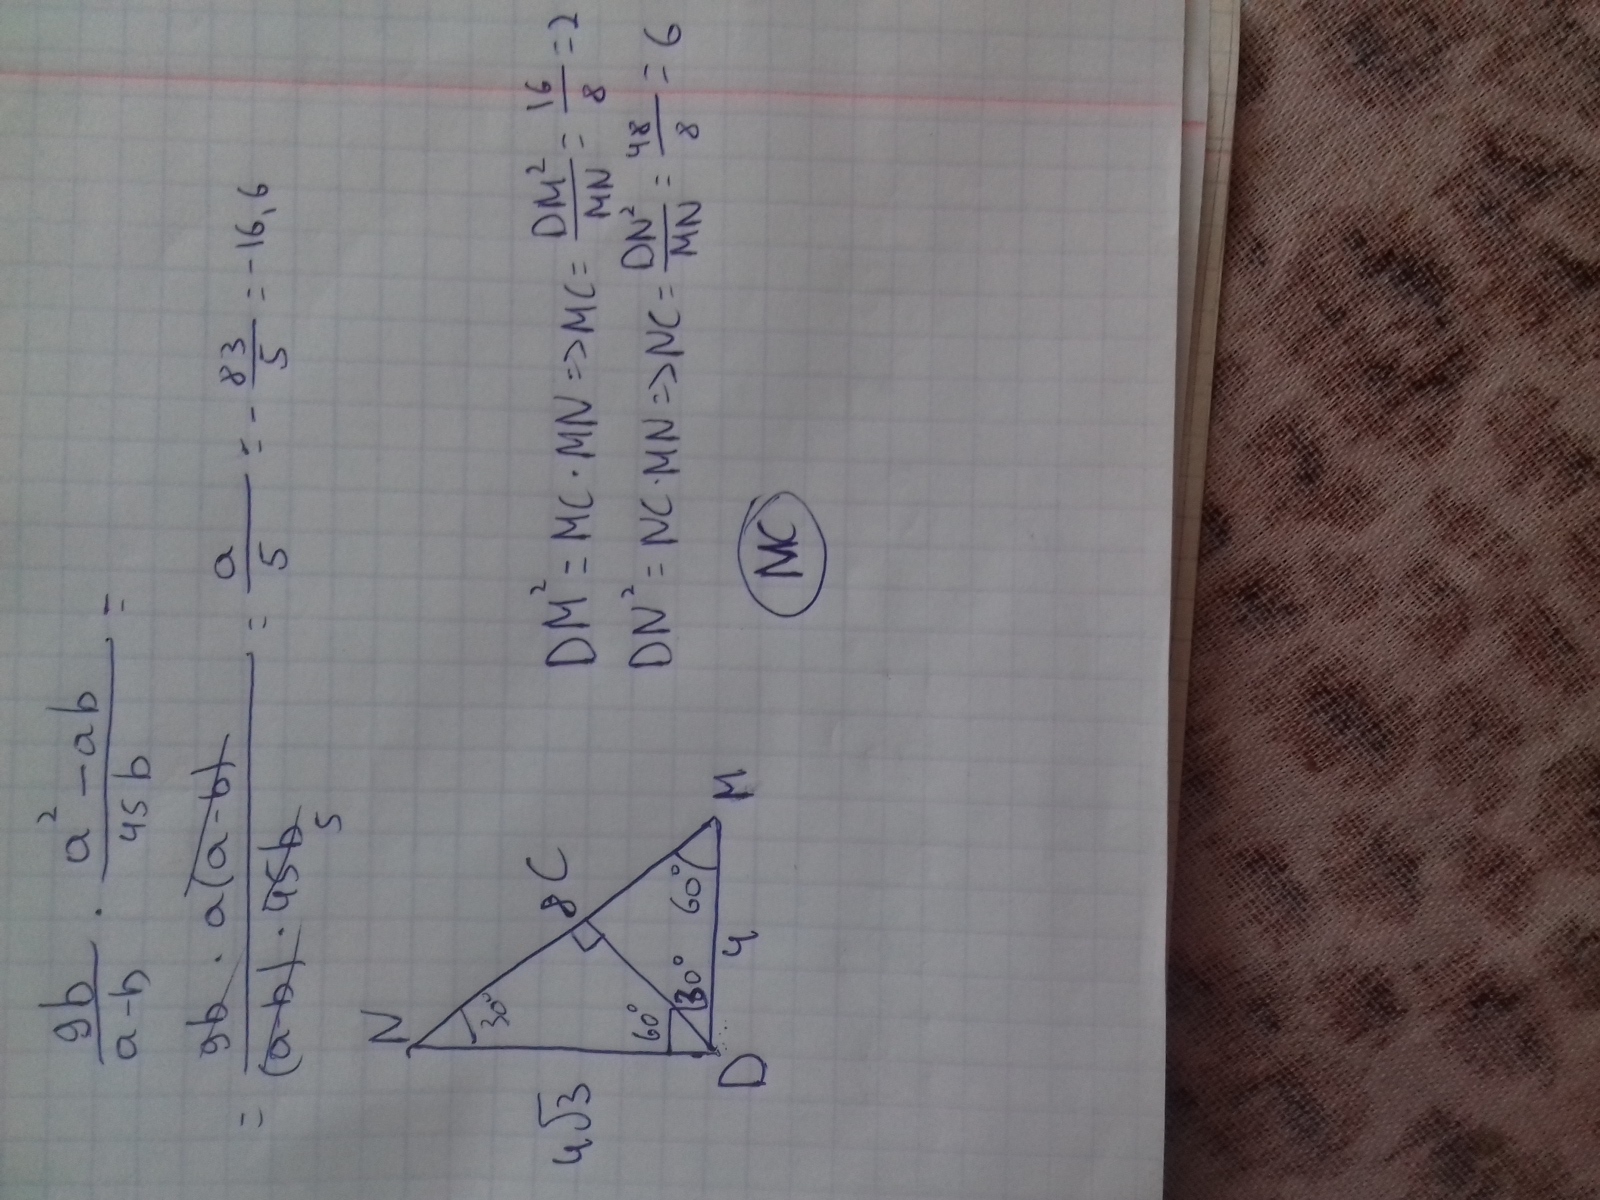 9b/(a-b) · (a² - ab)/(45b) =
= (9b · a(a-b))/((a-b) · 45b) = a/5 = -83/5 = -16,6
5
N
30°
8 C
4√3
60°
30°
60°
D
4
M
DM² = MC · MN => MC = DM²/MN = 16/8 = 2
DN² = NC · MN => NC = DN²/MN = 48/8 = 6